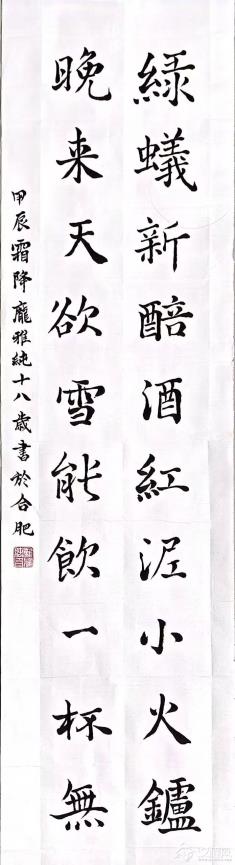 綠蟻新醅酒紅泥小火鑪
晚来天欲雪能飲一杯無
甲辰霜降龐雅純十八歲書於合肥